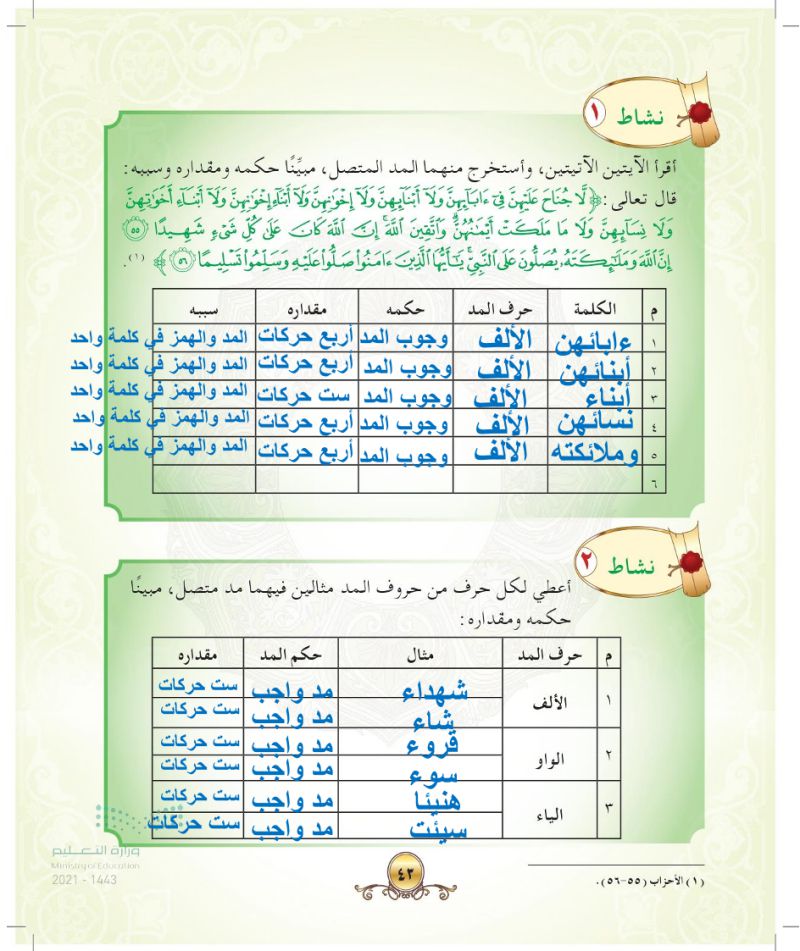 نشاط ١
أقرأ الآيتين الآتيتين، وأستخرج منهما المد المتصل، مبيِّنًا حكمه ومقداره وسببه:
قال تعالى: ﴿ لَّا جُنَاحَ عَلَيْهِنَّ فِىٓ ءَابَآئِهِنَّ وَلَآ أَبْنَآئِهِنَّ وَلَآ إِخْوَٰنِهِنَّ وَلَآ أَبْنَآءِ إِخْوَٰنِهِنَّ وَلَآ أَبْنَآءِ أَخَوَٰتِهِنَّ
وَلَا نِسَآئِهِنَّ وَلَا مَا مَلَكَتْ أَيْمَٰنُهُنَّ وَٱتَّقِينَ ٱللَّهَ إِنَّ ٱللَّهَ كَانَ عَلَىٰ كُلِّ شَىْءٍ شَهِيدًا ٥٥
إِنَّ ٱللَّهَ وَمَلَٰٓئِكَتَهُۥ يُصَلُّونَ عَلَى ٱلنَّبِىِّ يَٰٓأَيُّهَا ٱلَّذِينَ ءَامَنُوا۟ صَلُّوا۟ عَلَيْهِ وَسَلِّمُوا۟ تَسْلِيمًا ٥٦ ﴾ (١).
م الكلمة حرف المد حكمه مقداره سببه
١ ءابائهن الألف وجوب المد أربع حركات المد والهمز في كلمة واحد
٢ أبنائهن الألف وجوب المد أربع حركات المد والهمز في كلمة واحد
٣ أبناء الألف وجوب المد ست حركات المد والهمز في كلمة واحد
٤ نسائهن الألف وجوب المد أربع حركات المد والهمز في كلمة واحد
٥ وملائكته الألف وجوب المد أربع حركات المد والهمز في كلمة واحد
٦
نشاط ٢
أعطي لكل حرف من حروف المد مثالين فيهما مد متصل، مبينًا
حكمه ومقداره:
م حرف المد مثال حكم المد مقداره
١ الألف شهداء مد واجب ست حركات
شاء مد واجب ست حركات
٢ الواو قروء مد واجب ست حركات
سوء مد واجب ست حركات
٣ الياء هنيئا مد واجب ست حركات
سيئت مد واجب ست حركات
(١) الأحزاب (٥٥-٥٦).
٤٣
وزارة التعليم
Ministry of Education
2021 - 1443